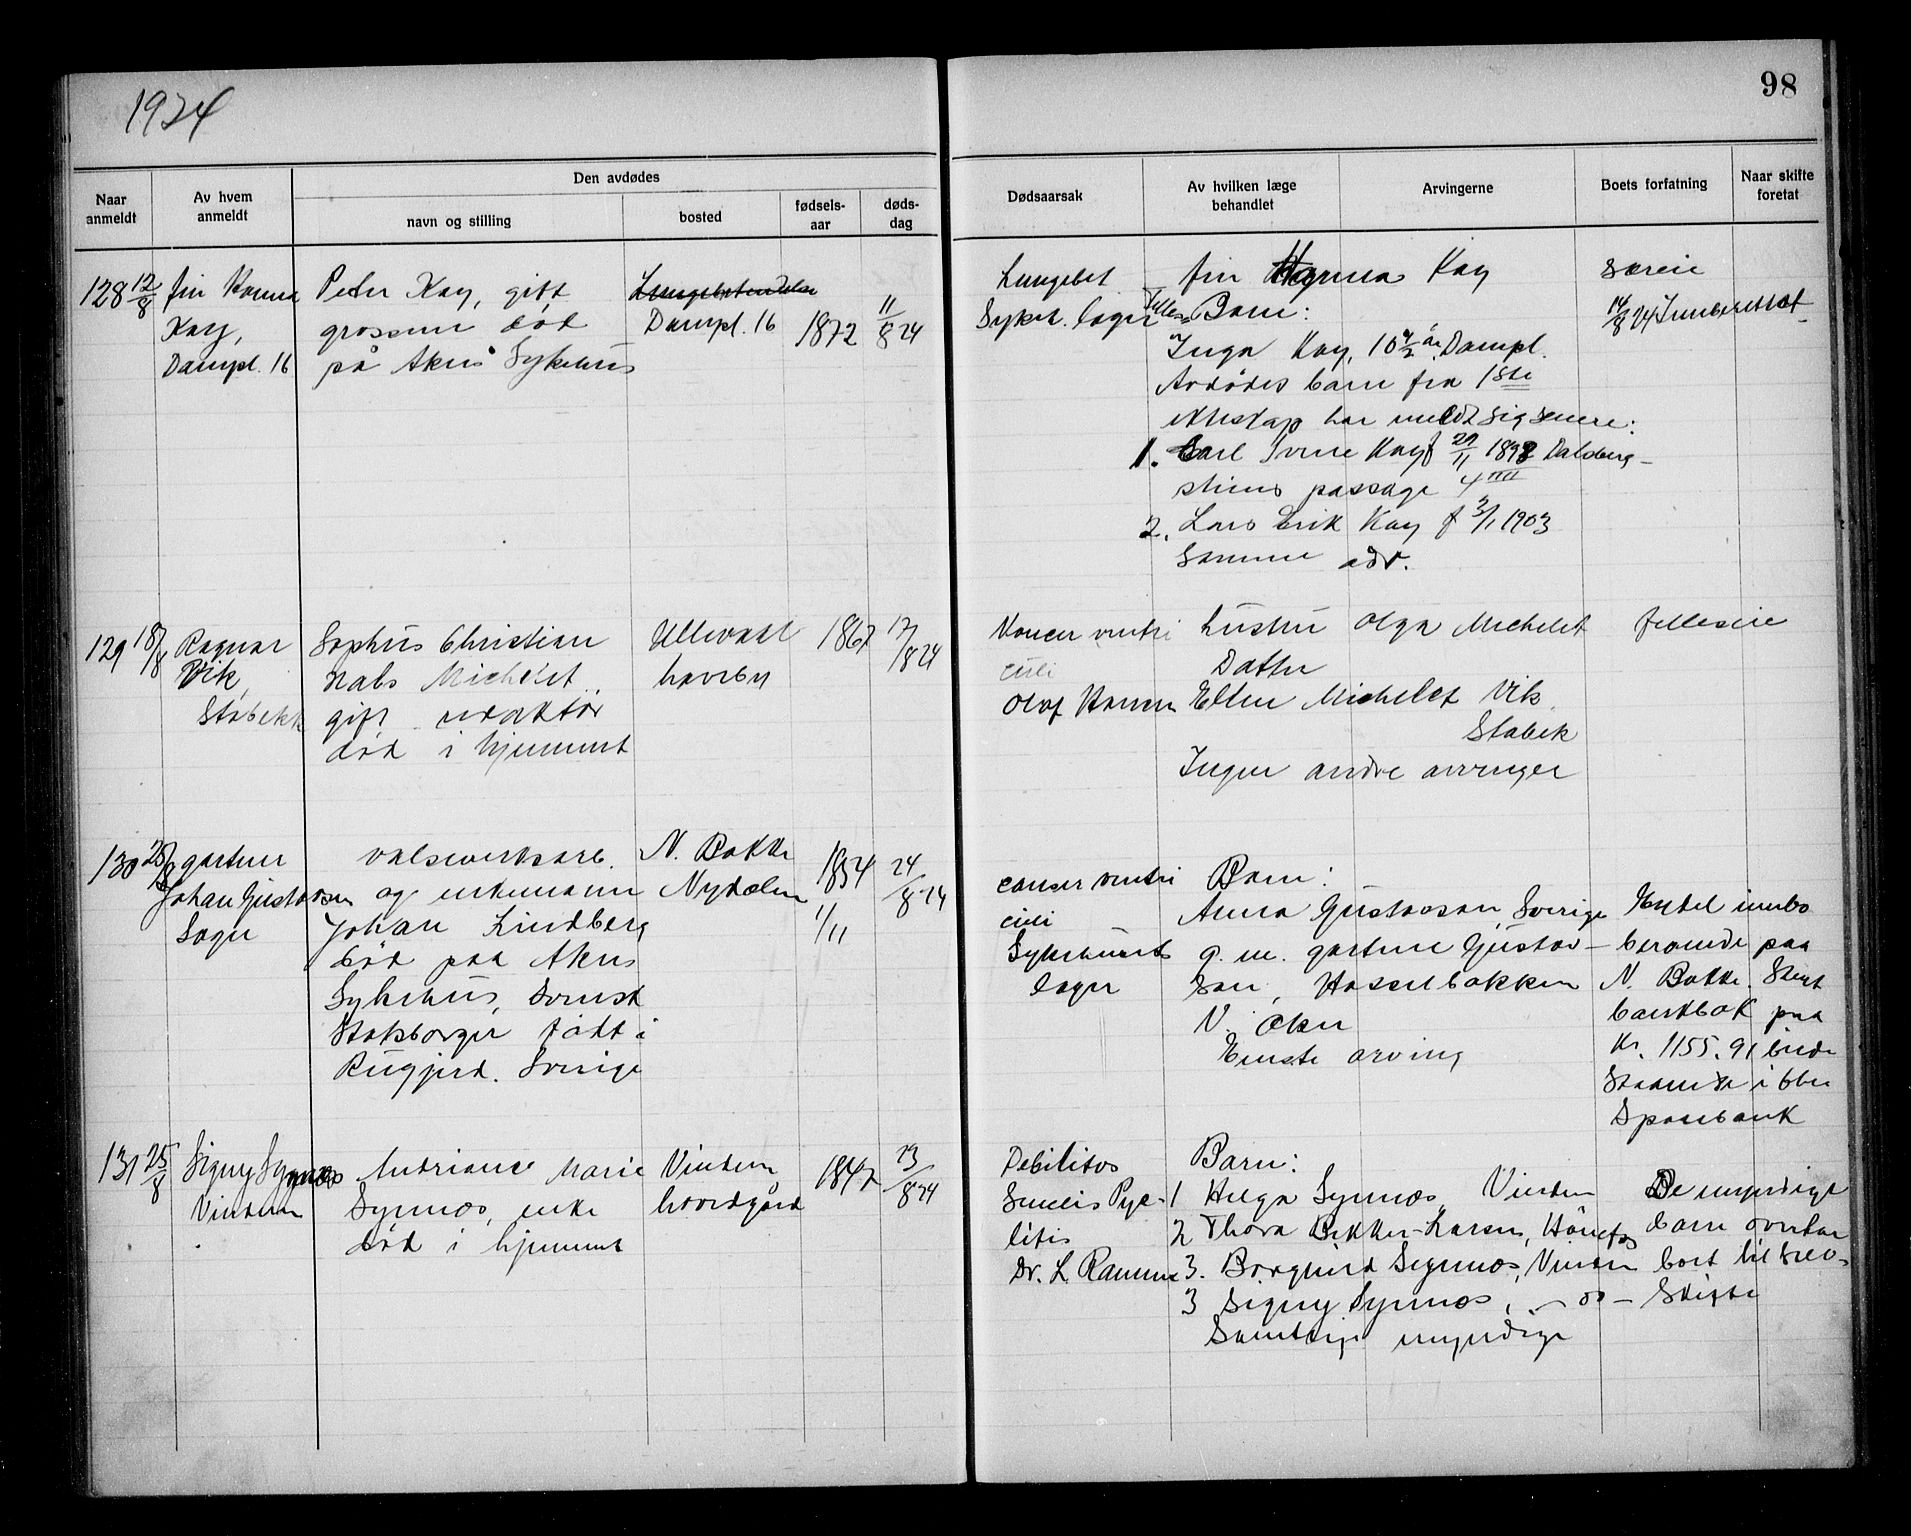 1924
98
Naar anmeldt
Av hvem anmeldt
Den avdødes
navn og stilling
bosted
fødsels-aar
døds-dag
Dødsaarsak
Av hvilken læge behandlet
Arvingerne
Boets forfatning
Naar skifte foretat
128 12/8
fru Hanna
Kay,
Dampl. 16
Peter Kay, gift
grosserer død
på Akers Sykehus
Dampl. 16
1872
11/8 24
Lungebet.
Sykeh. læger
fru Hanna Kay
Barn:
Inga Kay, 10 1/2 år, Dampl.
Avdødes barn fra 1ste
ekteskap har meldt sig senere:
1. Carl Sverre Kay f 29/11 1898 Dalsberg-
stiens passage 4 IIII
2. Lars Erik Kay f 3/1 1903
Samme adr.
særeie
14/8 24 Innberettet
129 18/8
Ragnar
Vik,
Stabekk
Sophus Christian
Michelet
gift redaktør
død i hjemmet
Ullevaal
haveby
1867
17/8 24
Kancer ventri
culi
Olaf Hansen
hustru Olga Michelet
Datter
Ellen Michelet Vik
Stabek
Ingen andre arvinger
felleseie
130 25/8
gartner
Johan Gustavsen
Sogn
valseverksarb.
og enkemann
Johan Lindberg
død paa Akers
Sykehus, Svensk
Statsborger født i
Sverige
N. Bakke
Nydalen
1854
1/11
24/8 24
cancer ventri
culi
Sykehusets
læger
Barn:
Anna Gustavson, Sverige
g. m. gartner Gustav-
son, Hasselbakken
V. Aker
Eneste arving
Endel innbo
beroende paa
N. Bakke. Samt
bankbok paa
Kr. 1155.91 inde
staaende i Oslo
Sparebank
131 25/8
Signy Synnæs
Vinderen
Andriane Marie
Synnæs, enke
død i hjemmet
Vinderen
hovedgård
1847
23/8 24
Debilitas
Senilis Pye-
litis
Dr. L. Ramm
Barn:
1 Helga Synnæs, Vinderen
2 Thora Bekker-Larsen, Hönefos
3. Borghild Synnæs, Vinderen
3 Signy Synnæs, — " —
Samtlige myndige
De myndige
barn overtar
boet til priv.
Skifte